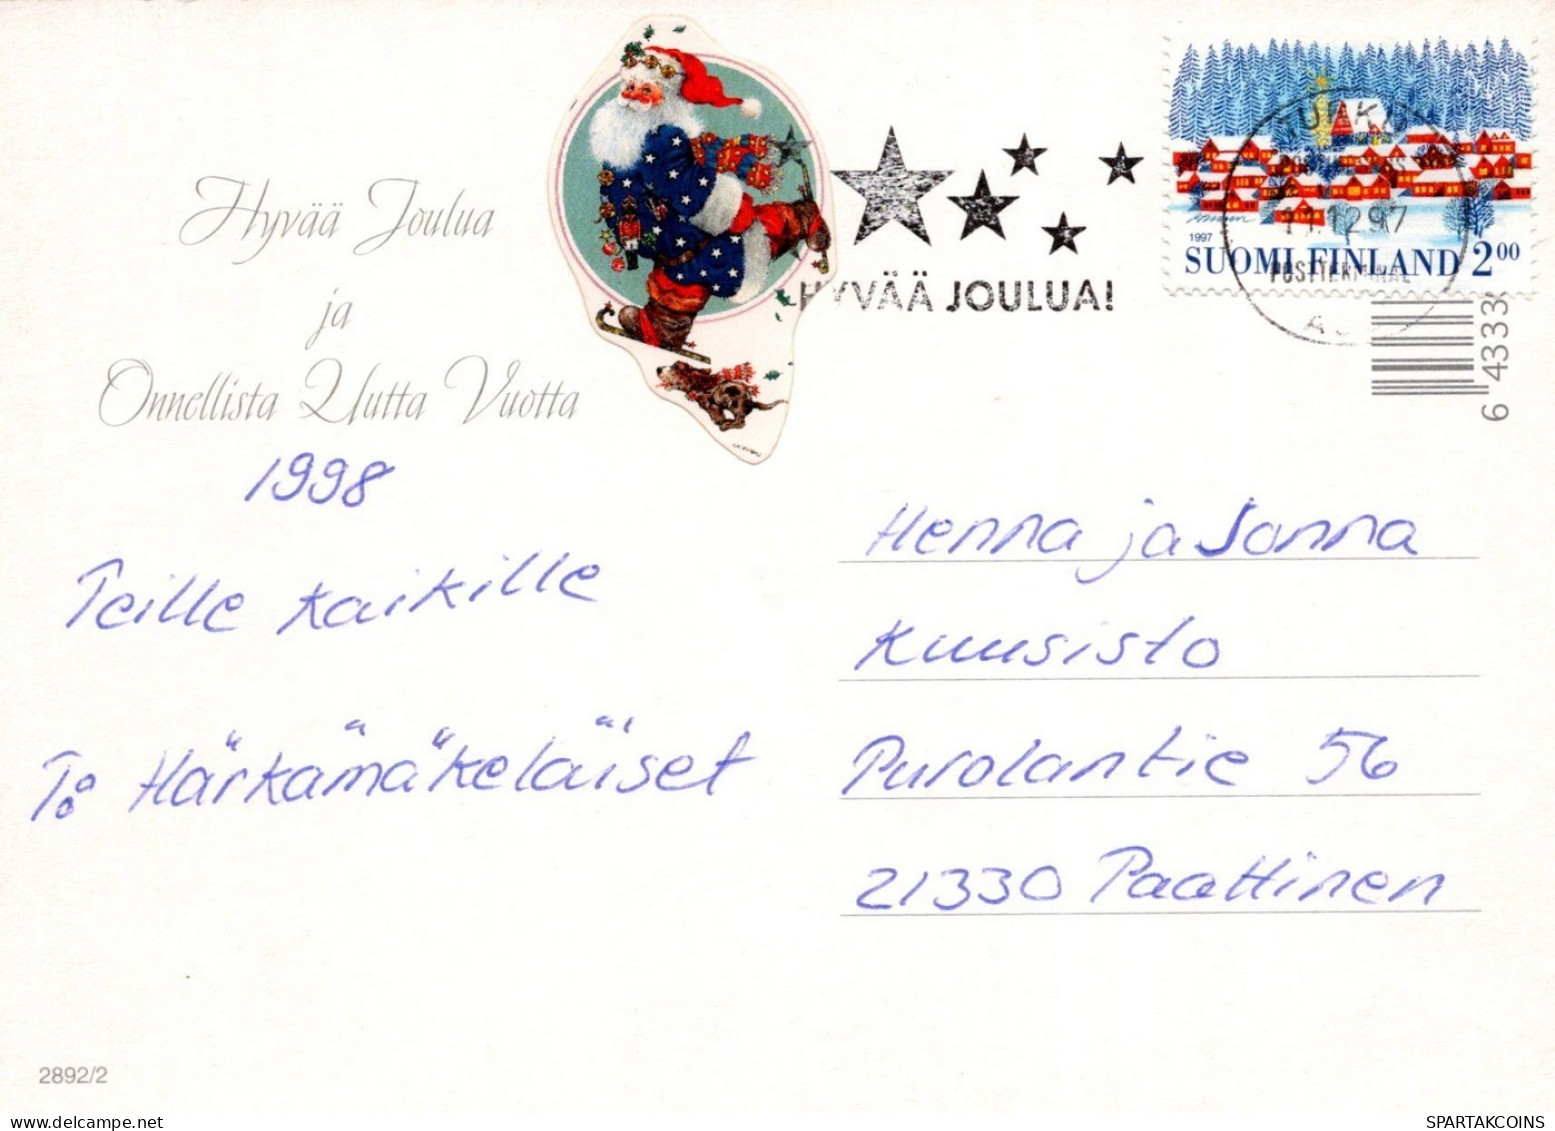 Hyvää Joulua
ja
Onnellista Uutta Vuotta
1998
Teille kaikille
T: Härkämäkeläiset
2892/2
HYVÄÄ JOULUA!
1997
SUOMI FINLAND 2.00
TURKU
11.12.97
POSTITERMINAL
6 4333
Henna ja Sanna
Kuusisto
Purolantie 56
21330 Paattinen
SPARTAKCOINS